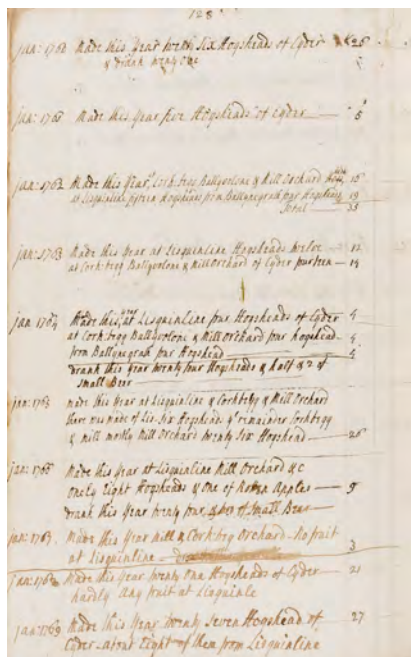 128
jan: 1760 Made this Year twenty Six Hogsheads of Cyder 26
& drank twenty one
jan: 176 Made this Year five Hogsheads of Cyder 5
jan: 1762 Made this Year Corkbegg Ballyvolone & Mill Orchard 18
at Lisquinline fifteen Hogsheads from Ballynagrah four Hogsheads 19
Total 35
jan: 1763 Made this Year at Lisquinline Hogsheads twelve 12
at Corkbegg Ballyvolone & Mill Orchard of Cyder fourteen 14
jan 1764 Made this year at Lisquinline four Hogsheads of Cyder 4
at Corkbegg Ballyvolone & Mill Orchard four hogshead 4
from Ballynagrah four Hogshead 4
drank this Year twenty four Hogsheads & half & 2 of
Small Beer
jan: 1765 made this Year at Lisquinline & Corkbegg & Mill Orchard
there was made of Lis: Six Hogsheads ye remainder Corkbegg
& mill mostly Mill Orchard twenty Six Hogshead 26
jan: 1766 Made this Year at Lisquinline Mill Orchard &c
onely Eight Hogsheads & One of Rotten Apples 9
drank this Year twenty four, & two of Small Bear
jan: 1767 Made this Year Mill & Corkbeg Orchard No fruit
at Lisquinline 3
jan: 1768 Made this Year twenty One Hogsheads of Cyder 21
hardly any fruit at Lisquinle
jan: 1769 Made this Year twenty Seven Hogshead of 27
Cyder about Eight of them from Lisquinline